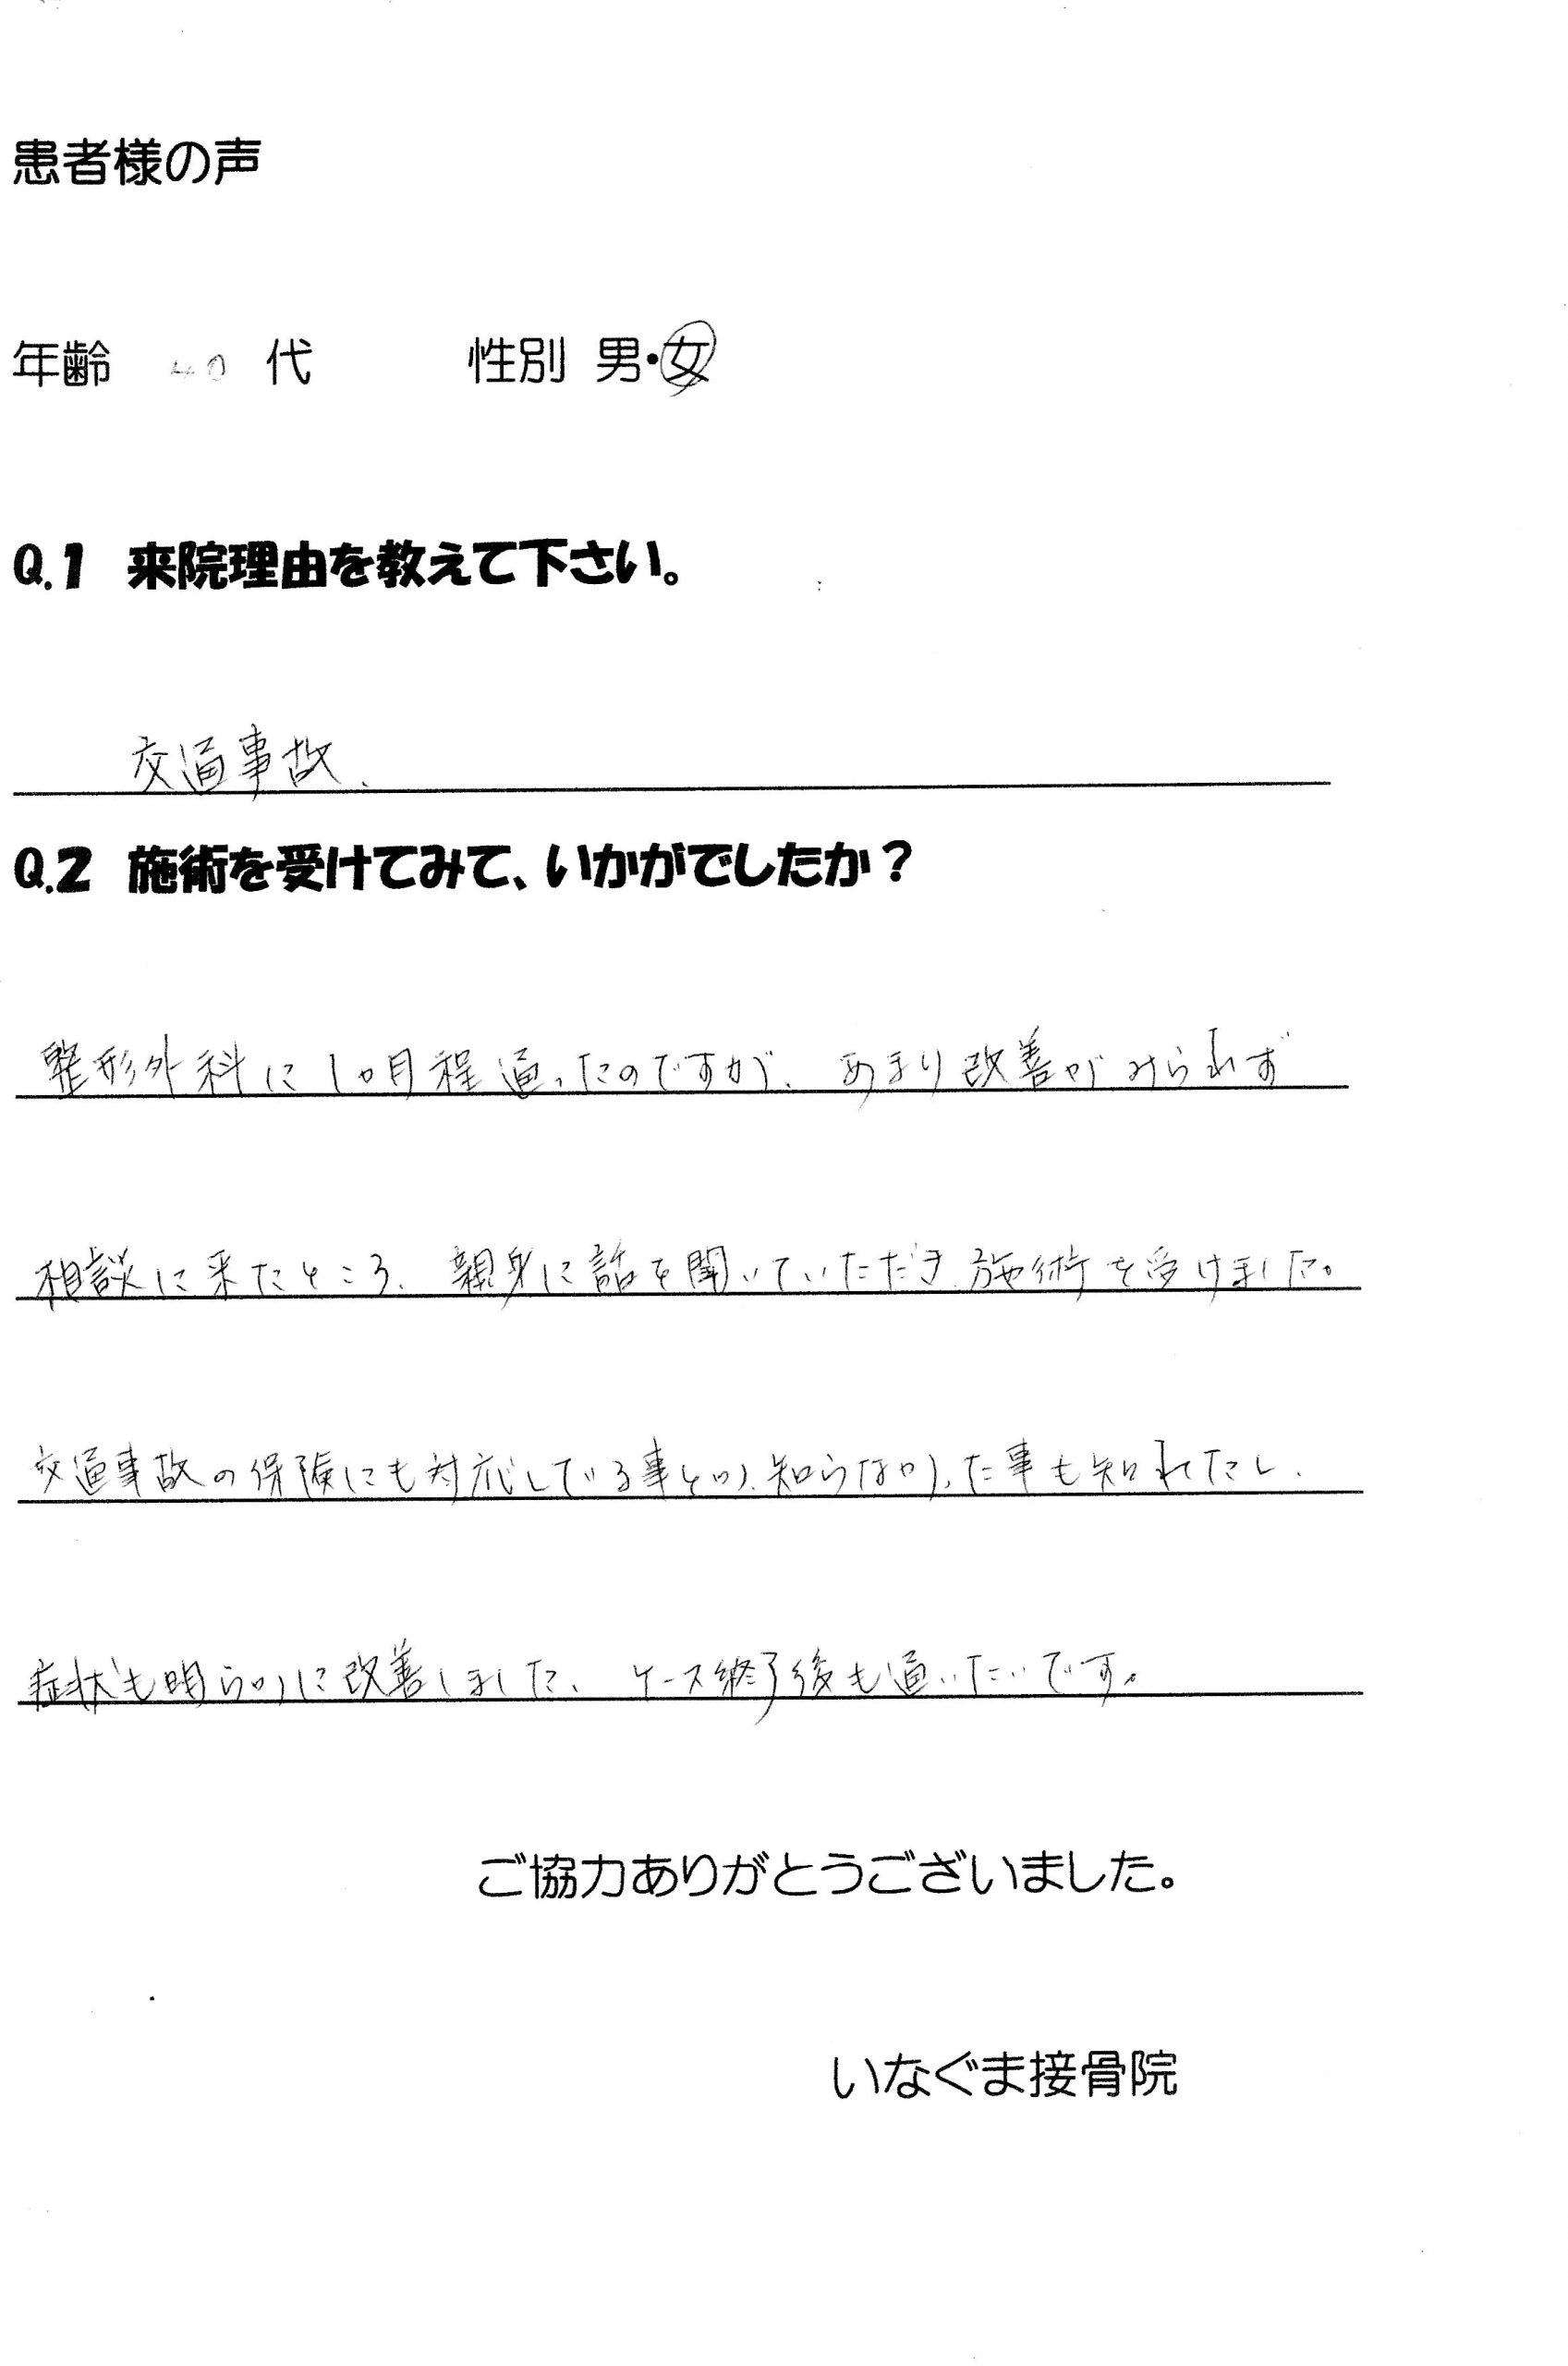 患者様の声
年齢 40 代 性別 男・女
Q.1 来院理由を教えて下さい。
交通事故、
Q.2 施術を受けてみて、いかがでしたか?
整形外科に1ヶ月程通ったのですが、あまり改善がみられず
相談に来たところ、親身に話を聞いていただき施術を受けました。
交通事故の保険にも対応している事とか、知らなかった事も知れたし、
症状も明らかに改善しました、ケース終了後も通いたいです。
ご協力ありがとうございました。
いなぐま接骨院